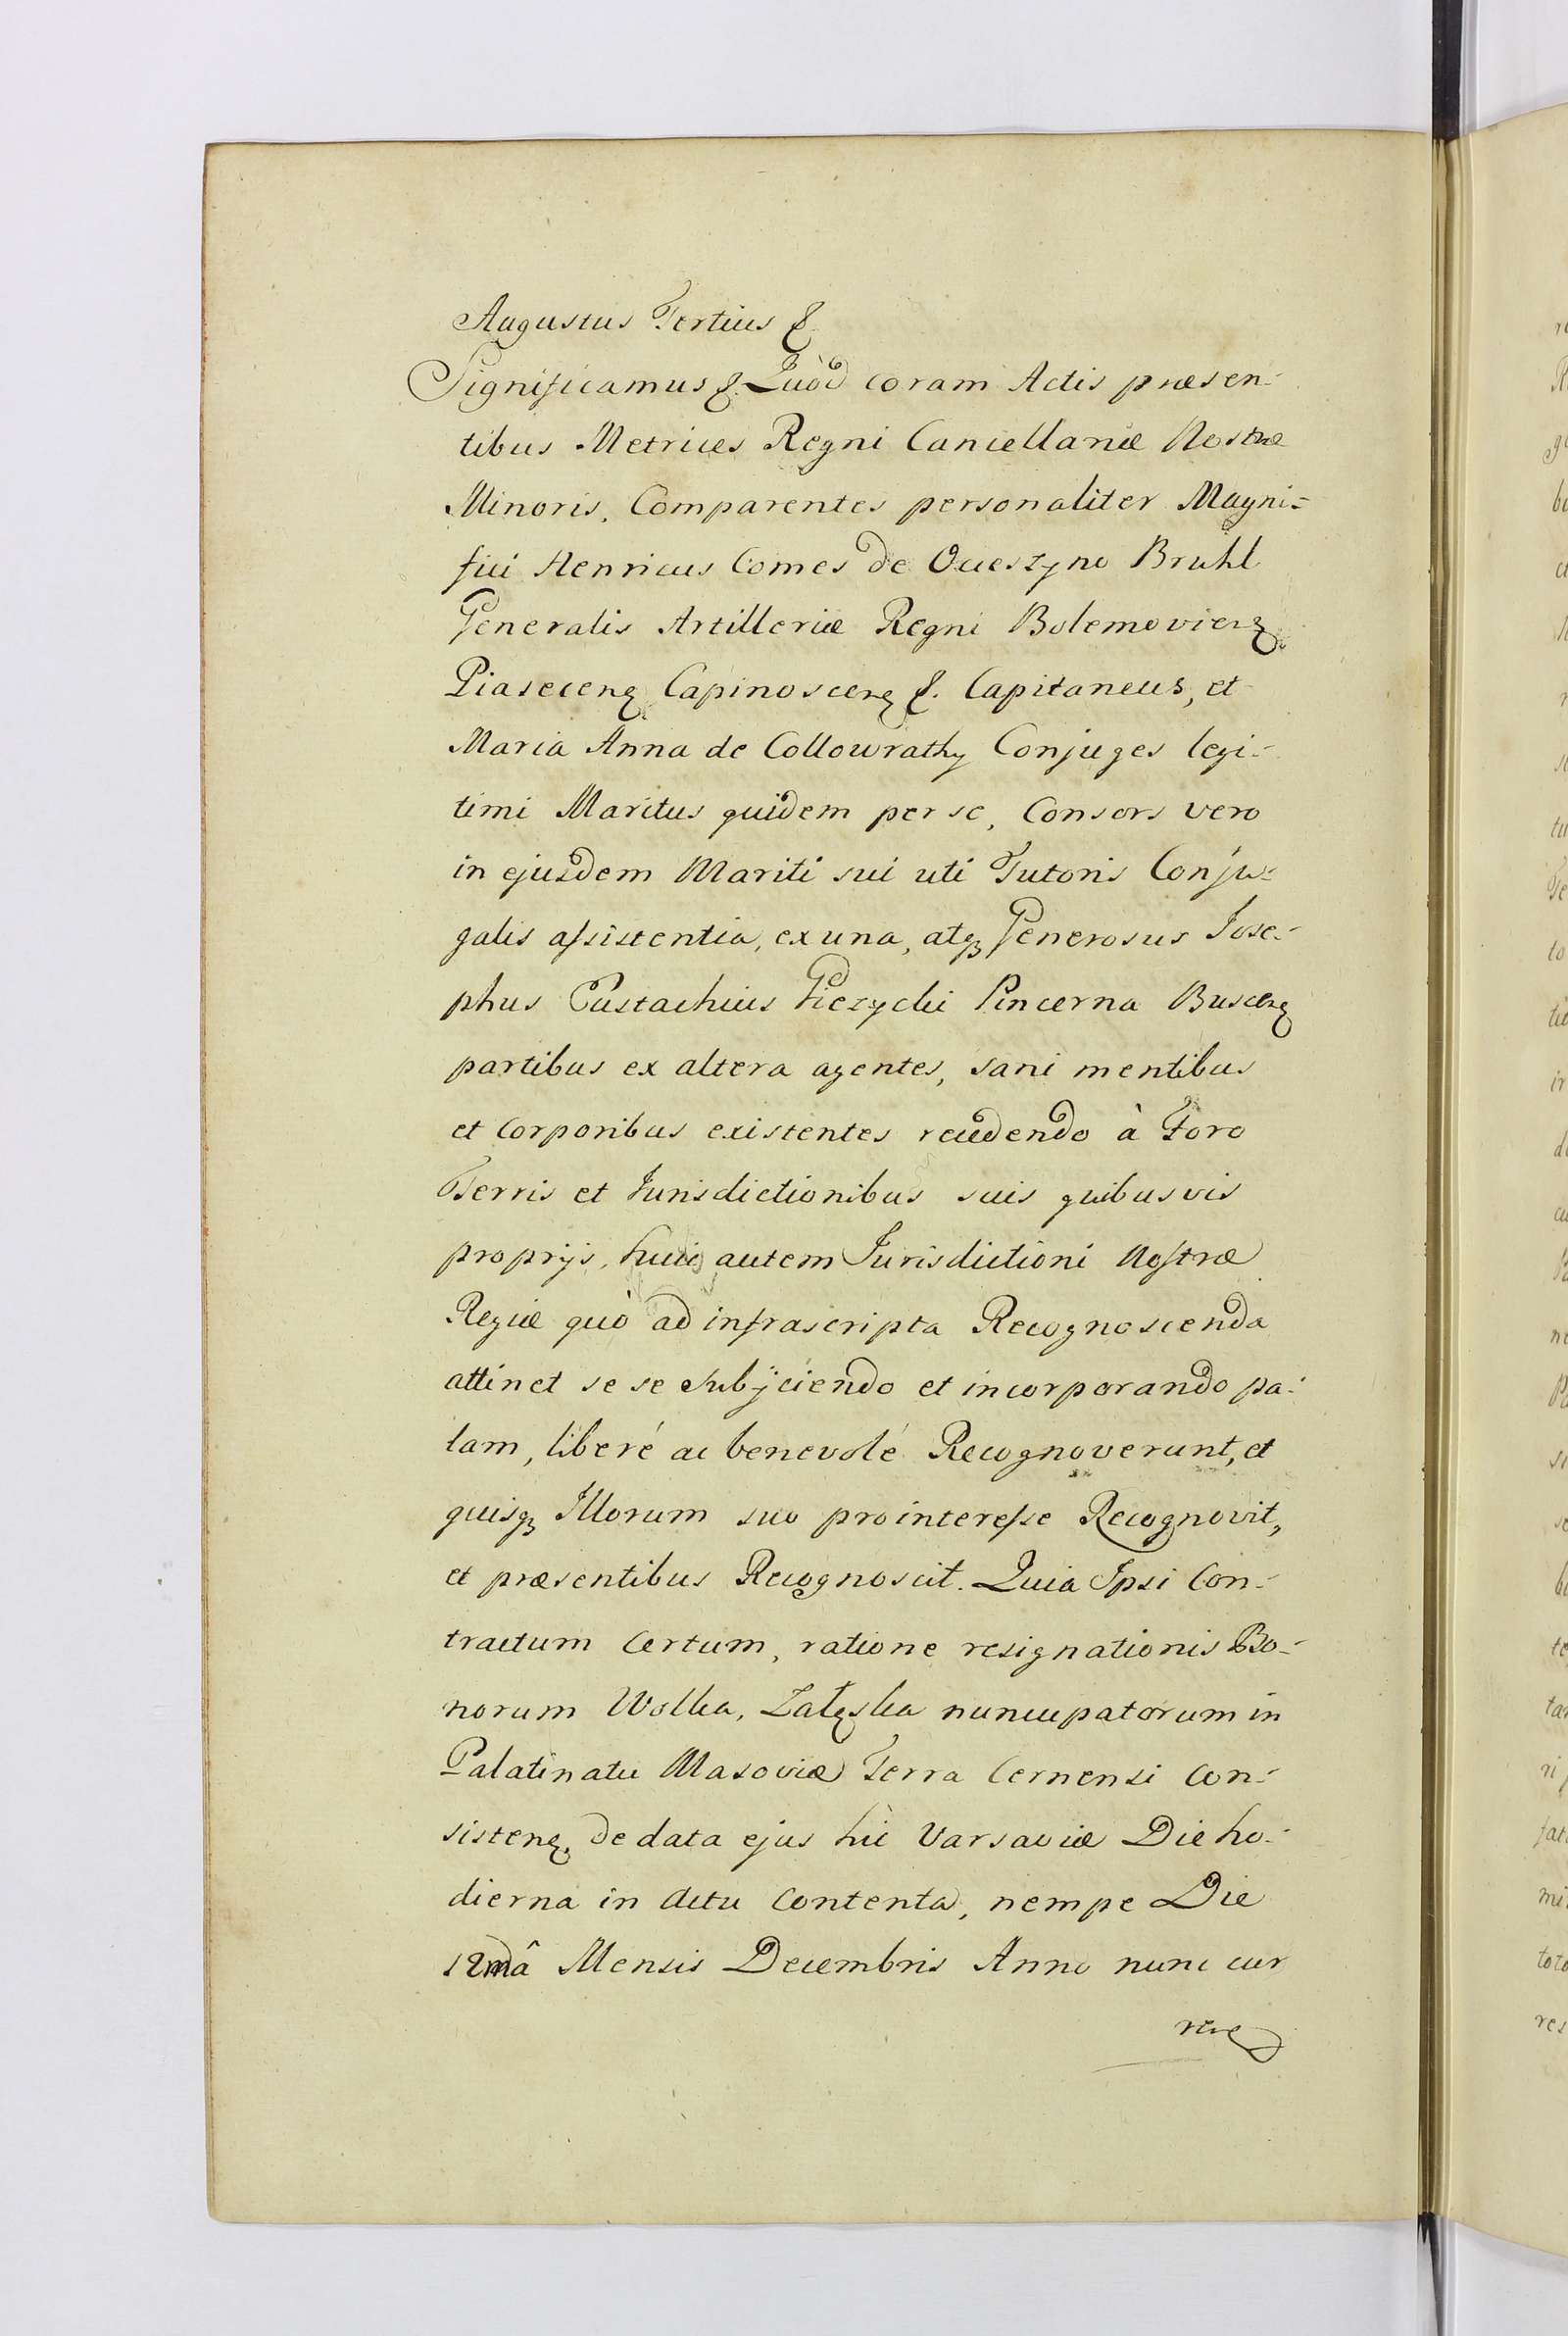 Augustus Tertius &.
Significamus &. Quòd coram Actis præsen-
tibus Metrices Regni Cancellariæ Nostræ
Minoris, Comparentes personaliter Magni-
fici Henricus Comes de Ocieszyno Bruhl
Generalis Artilleriæ Regni Bolemovien̄.
Piasecen̄. Capinoscen̄ &. Capitaneus, et
Maria Anna de Collowrathy Conjuges legi-
timi Maritus quidem per se, Consors vero
in ejusdem Mariti sui uti Tutoris Conju-
galis assistentia, ex una, atq̨ Generosus Jose-
phus Eustachius Pieżycki Pincerna Buscen̄
partibus ex altera agentes, sani mentibus
et Corporibus existentes recedendo à Foro
Terris et Jurisdictionibus suis quibusvis
proprijs, huic autem Jurisdictioni Nostræ
Regiæ quò ad infrascripta Recognoscenda
attinet se se subjiciendo et incorporando pa-
lam, liberé ac benevolé Recognoverunt, et
quisq̨ Illorum suo prointeresse Recognovit,
et præsentibus Recognoscit. Quia Ipsi Con-
tractum Certum, ratione resignationis Bo-
norum Wolka, Załęska nuncupatorum in
Palatinatu Masoviæ Terra Cernensi Con-
sisten̄. de data ejus hic Varsaviæ Die ho-
dierna in Actu Contenta, nempe Die
12mâ Mensis Decembris Anno nunc cur